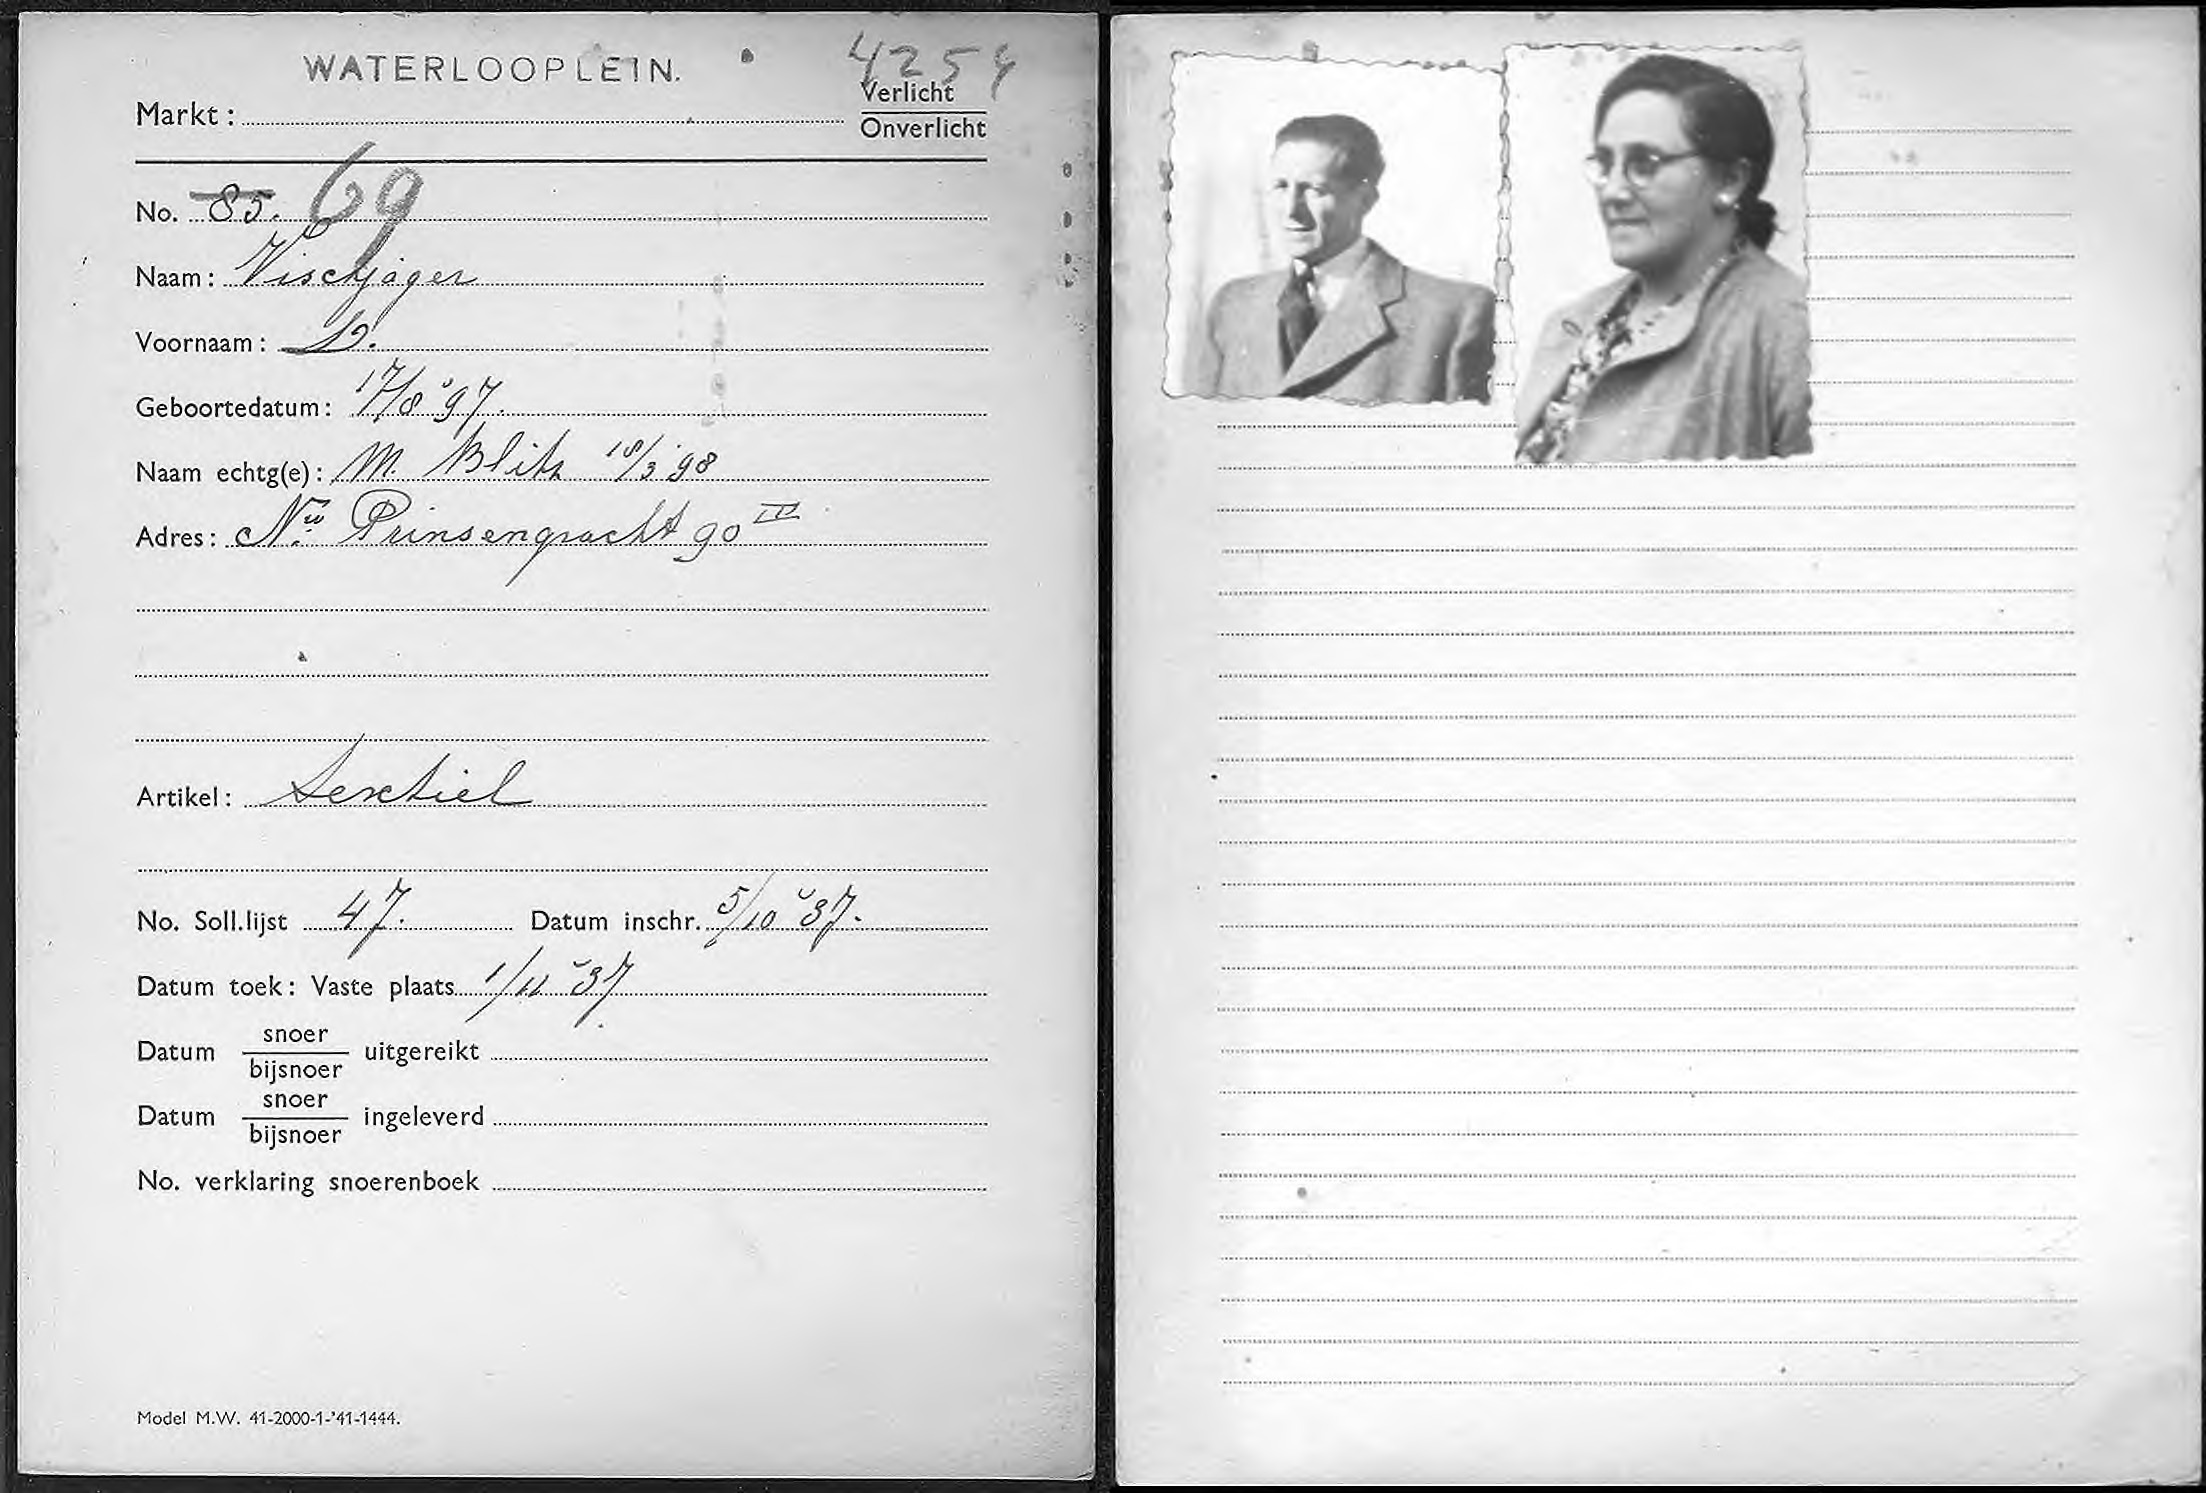 WATERLOOPLEIN. 4254
Markt : Verlicht
Onverlicht
No. 85. 69
Naam : Vischjager
Voornaam : D.
Geboortedatum : 17/8 '97.
Naam echtg(e) : M. Blitz 18/3 '98
Adres : Nw. Prinsengracht 90 III
Artikel : Textiel
No. Soll.lijst 47. Datum inschr. 5/10 '37.
Datum toek : Vaste plaats 1/11 '37
Datum snoer/bijsnoer uitgereikt
Datum snoer/bijsnoer ingeleverd
No. verklaring snoerenboek
Model M.W. 41-2000-1-'41-1444.